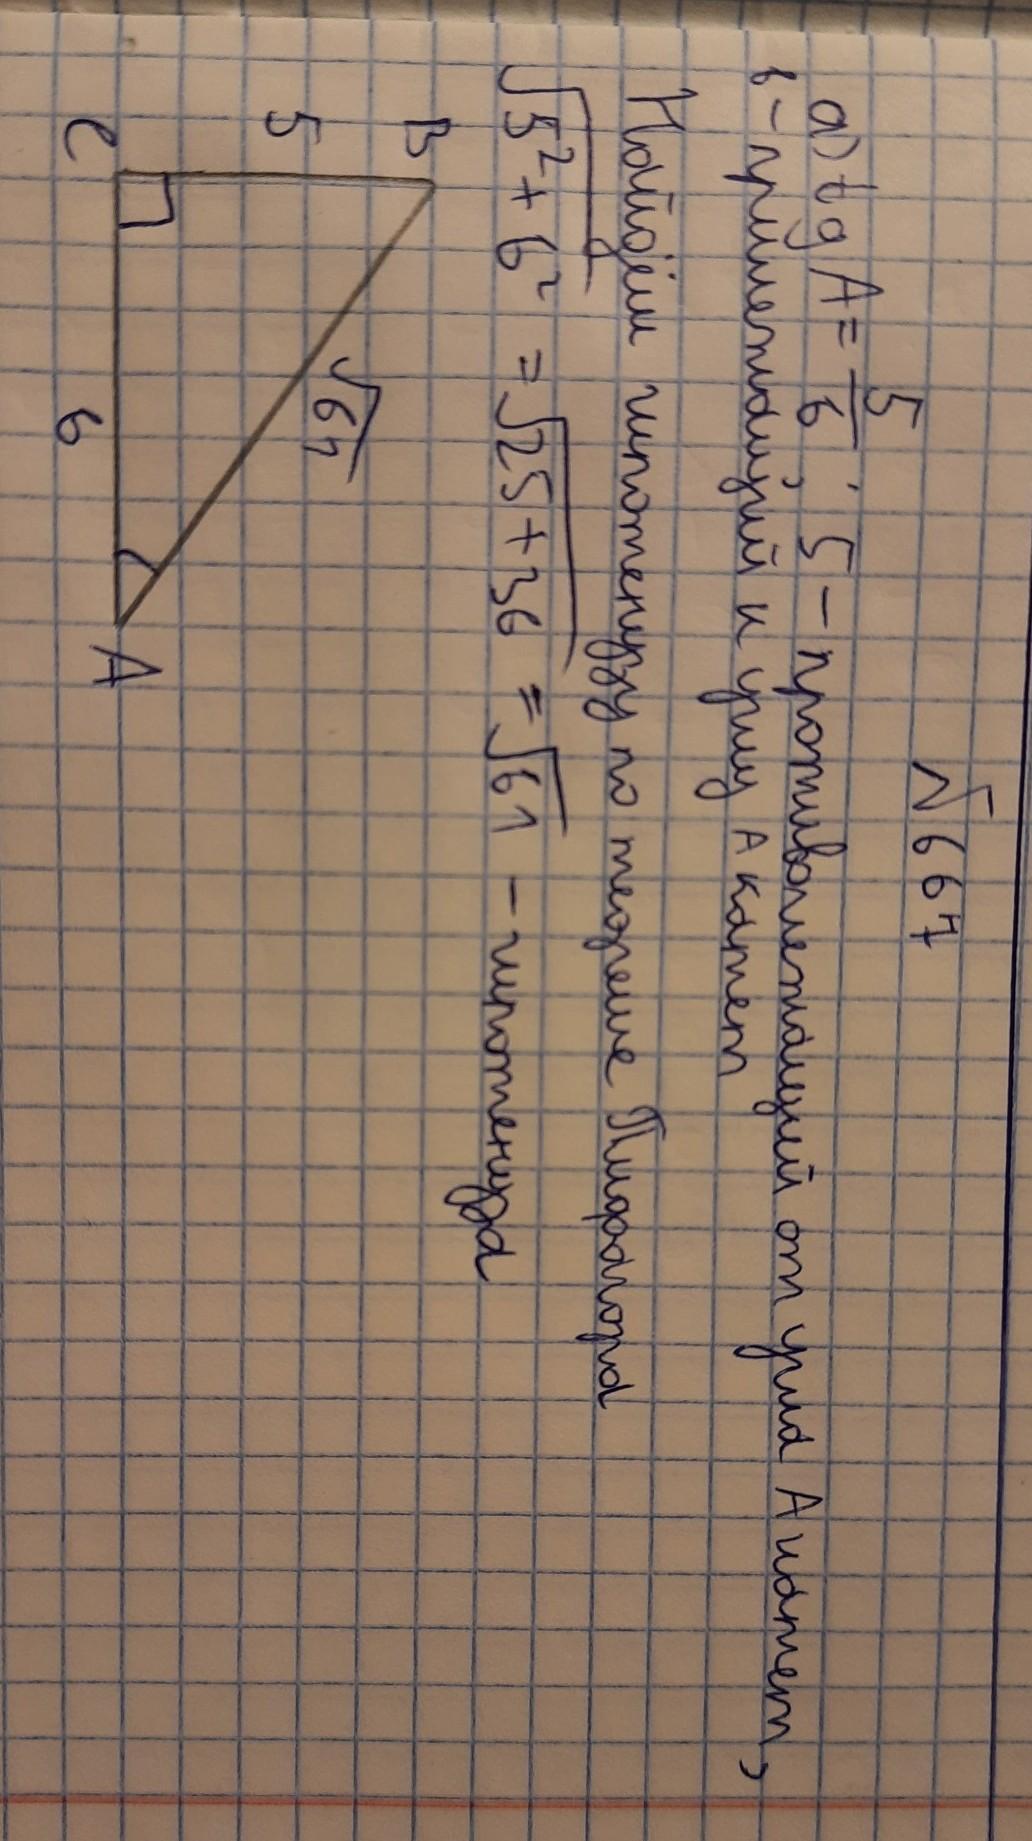 №667
а) tg A = 5/6; 5 – противолежащий от угла А катет,
6 – прилежащий к углу А катет
Найдём гипотенузу по теореме Пифагора
√5² + 6² = √25 + 36 = √61 – гипотенуза
B
5
√61
C
6
A